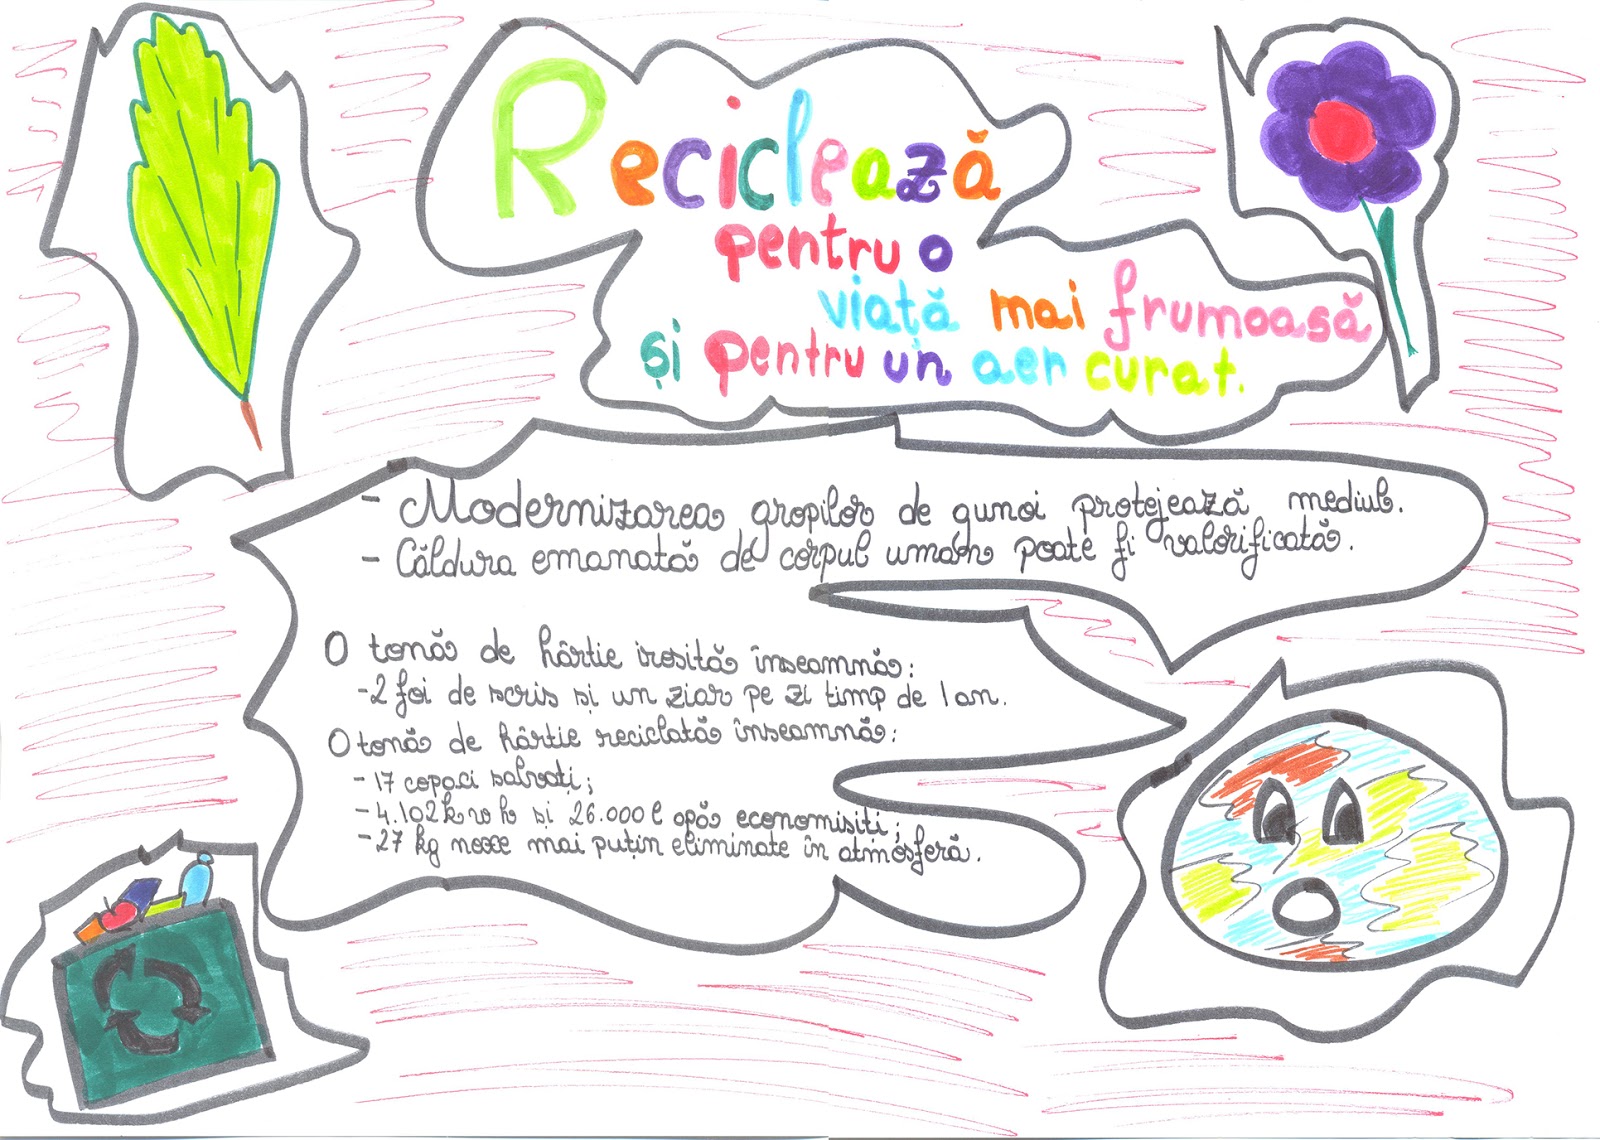 Reciclează
pentru o
viață mai frumoasă
și pentru un aer curat.
- Modernizarea gropilor de gunoi protejează mediul.
- Căldura emanată de corpul uman poate fi valorificată.
O tonă de hârtie irosită înseamnă:
-2 foi de scris și un ziar pe zi timp de 1 an.
O tonă de hârtie reciclată înseamnă:
-17 copaci salvați;
-4.102kwh și 26.000l apă economisiti;
-27 kg noxe mai puțin eliminate în atmosferă.